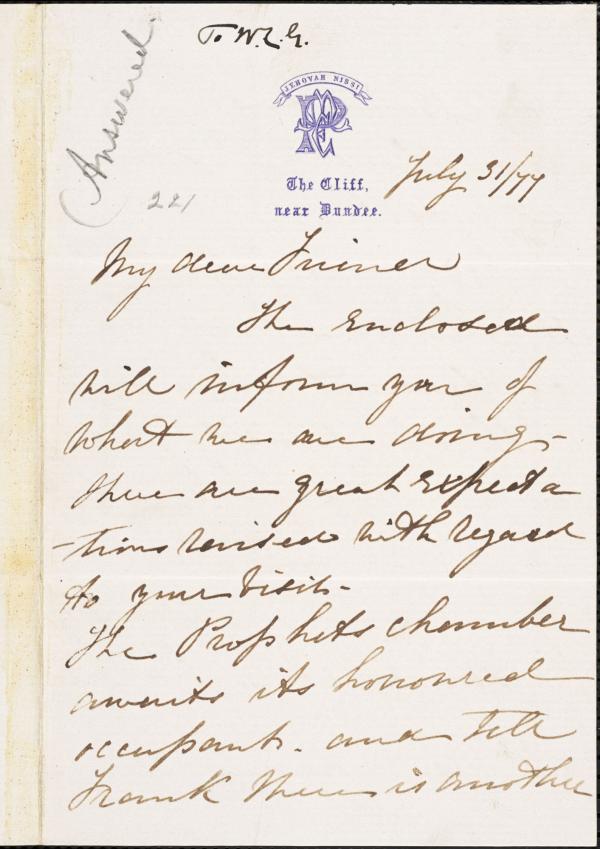 Answered.
To W.L.G.
JEHOVAH NISSI
221
The Cliff,
near Dundee.
July 31/77
My dear Friend
The enclosed
will inform you of
what we are doing -
there are great expecta
-tions raised with regard
to your visit -
The Prophets chamber
awaits its honoured
occupant. and tell
Frank there is another